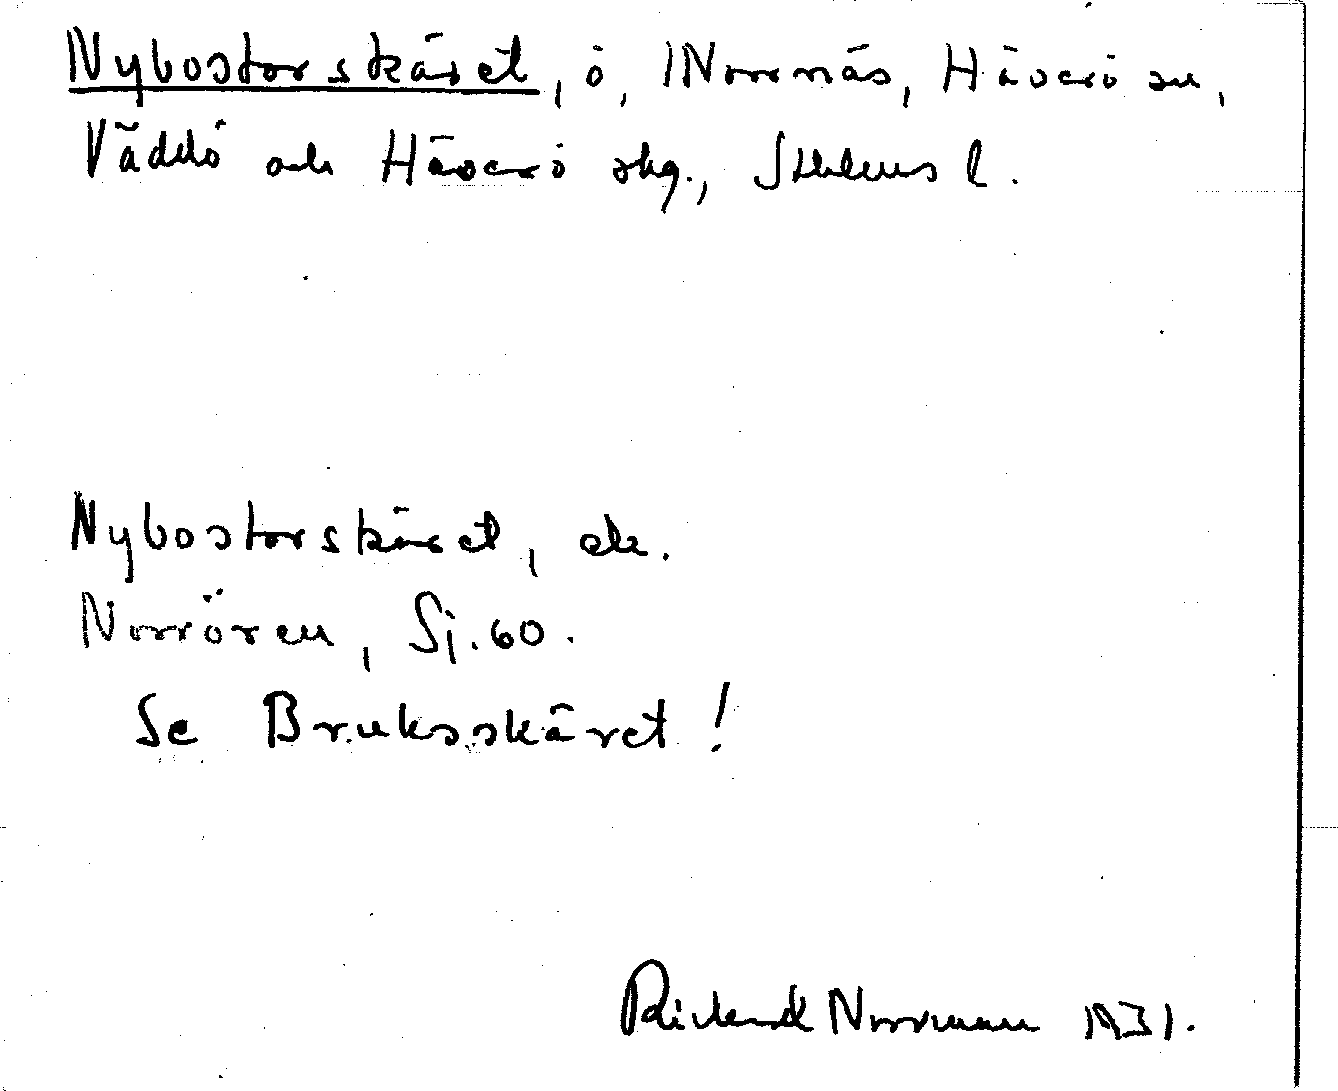 Nybostorskäret, ö, Norrnäs, Häverö sn,
Väddö och Häverö skg., Sthlms l.
Nybostorskäret, ek.
Norrören, Sj. 60.
Se Bruksskäret!
Rickard Norrman 1931.